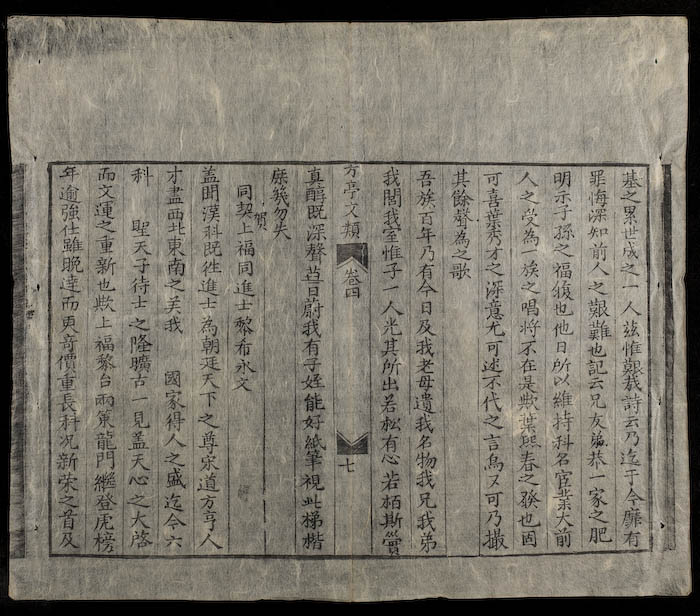 墓之累世成之一人茲惟艱哉詩云乃迄于今靡有
罪悔深知前人之艱難也記云兄友弟恭一家之肥
明示子孫之福後也他日所以維持科名宦業大前
人之受為一族之唱將不在是歟葉熙春之發也固
可喜葉秀才之深意尤可述不代之言烏又可乃撮
其餘聲為之歌
吾族百年乃有今日及我老母遺我名物我兄我弟
我閭我室惟子一人光其所出若松有心若栢斯實
方亭文類 卷四 七
真醇既深聲苾日蔚我有子姪能好紙筆視此梯楷
庶幾勿失
同契上福同進士黎希永文 賀
盖聞漢科既徃進士為朝廷天下之尊宋道方亨人
才盡西北東南之美我 國家得人之盛迄今六
科 聖天子待士之隆曠古一見盖天心之大啓
而文運之重新也歟上福黎台兩策龍門繼登虎榜
年逾強仕雖晚達而更竒價重長科况新榮之首及